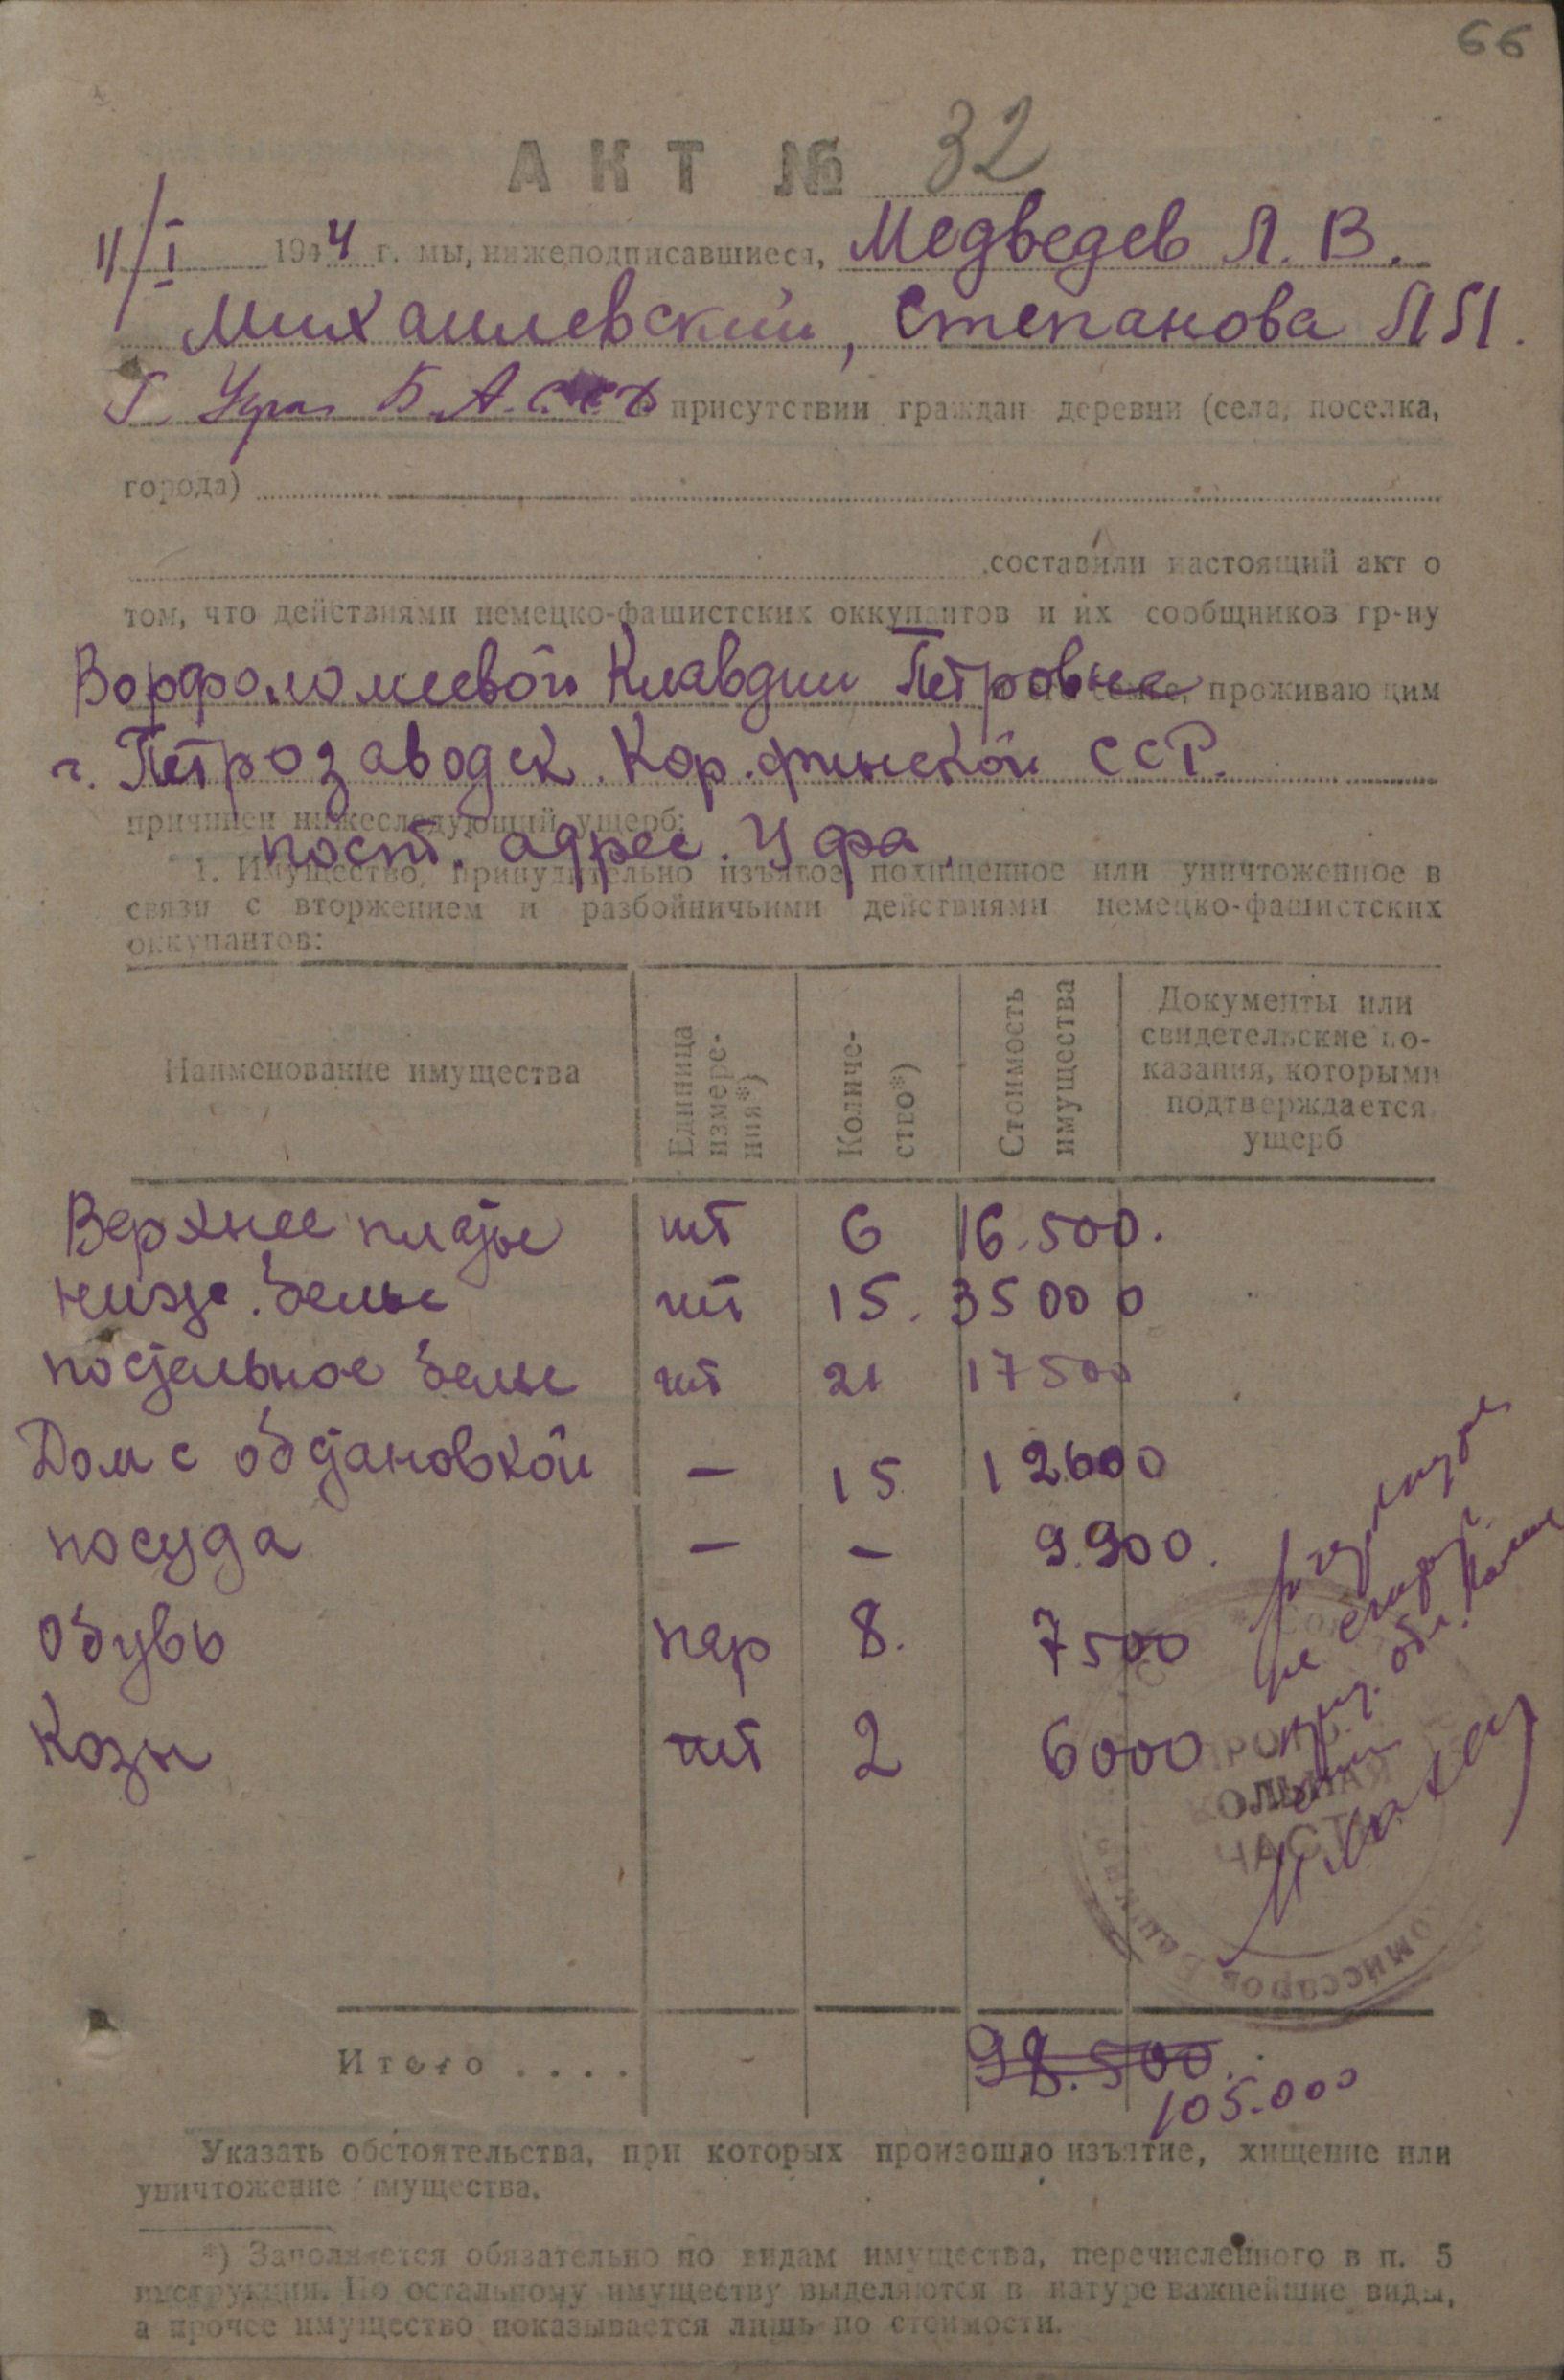 66
АКТ № 32
11/I 1944 г. мы, нижеподписавшиеся, Медведев Л. В.
Михайлевский, Степанова
г. Уфа Б.А.С.С.Р присутствии граждан деревни (села, поселка,
города)
составили настоящий акт о
том, что действиями немецко-фашистских оккупантов и их сообщников гр-ну
Ворфоломеевой Клавдии Петровне, проживающим
г. Петрозаводск. Кар. финской ССР.
причинен нижеследующий ущерб:
пост. адрес. Уфа.
1. Имущество, принудительно изъятое, похищенное или уничтоженное в
связи с вторжением и разбойничьими действиями немецко-фашистских
оккупантов:
Наименование имущества Единица измере-ния*) Количе-ство*) Стоимость имущества Документы или свидетельские по-казания, которыми подтверждается ущерб
Верхнее платье шт 6 16.500.
нижне. белье шт 15. 35000
постельное белье шт 21 17500
Дом с обстановкой — 15 12600
посуда — — 9.900.
Обувь пар 8. 7500
Козы шт 2 6000
ПРОТО-
КОЛЬНАЯ
ЧАСТЬ
Комиссаров
Итого . . . . 98.500.
105.000
Указать обстоятельства, при которых произошло изъятие, хищение или
уничтожение имущества.
*) Заполняется обязательно по видам имущества, перечисленного в п. 5
инструкции. По остальному имуществу выделяются в натуре важнейшие виды,
а прочее имущество показывается лишь по стоимости.